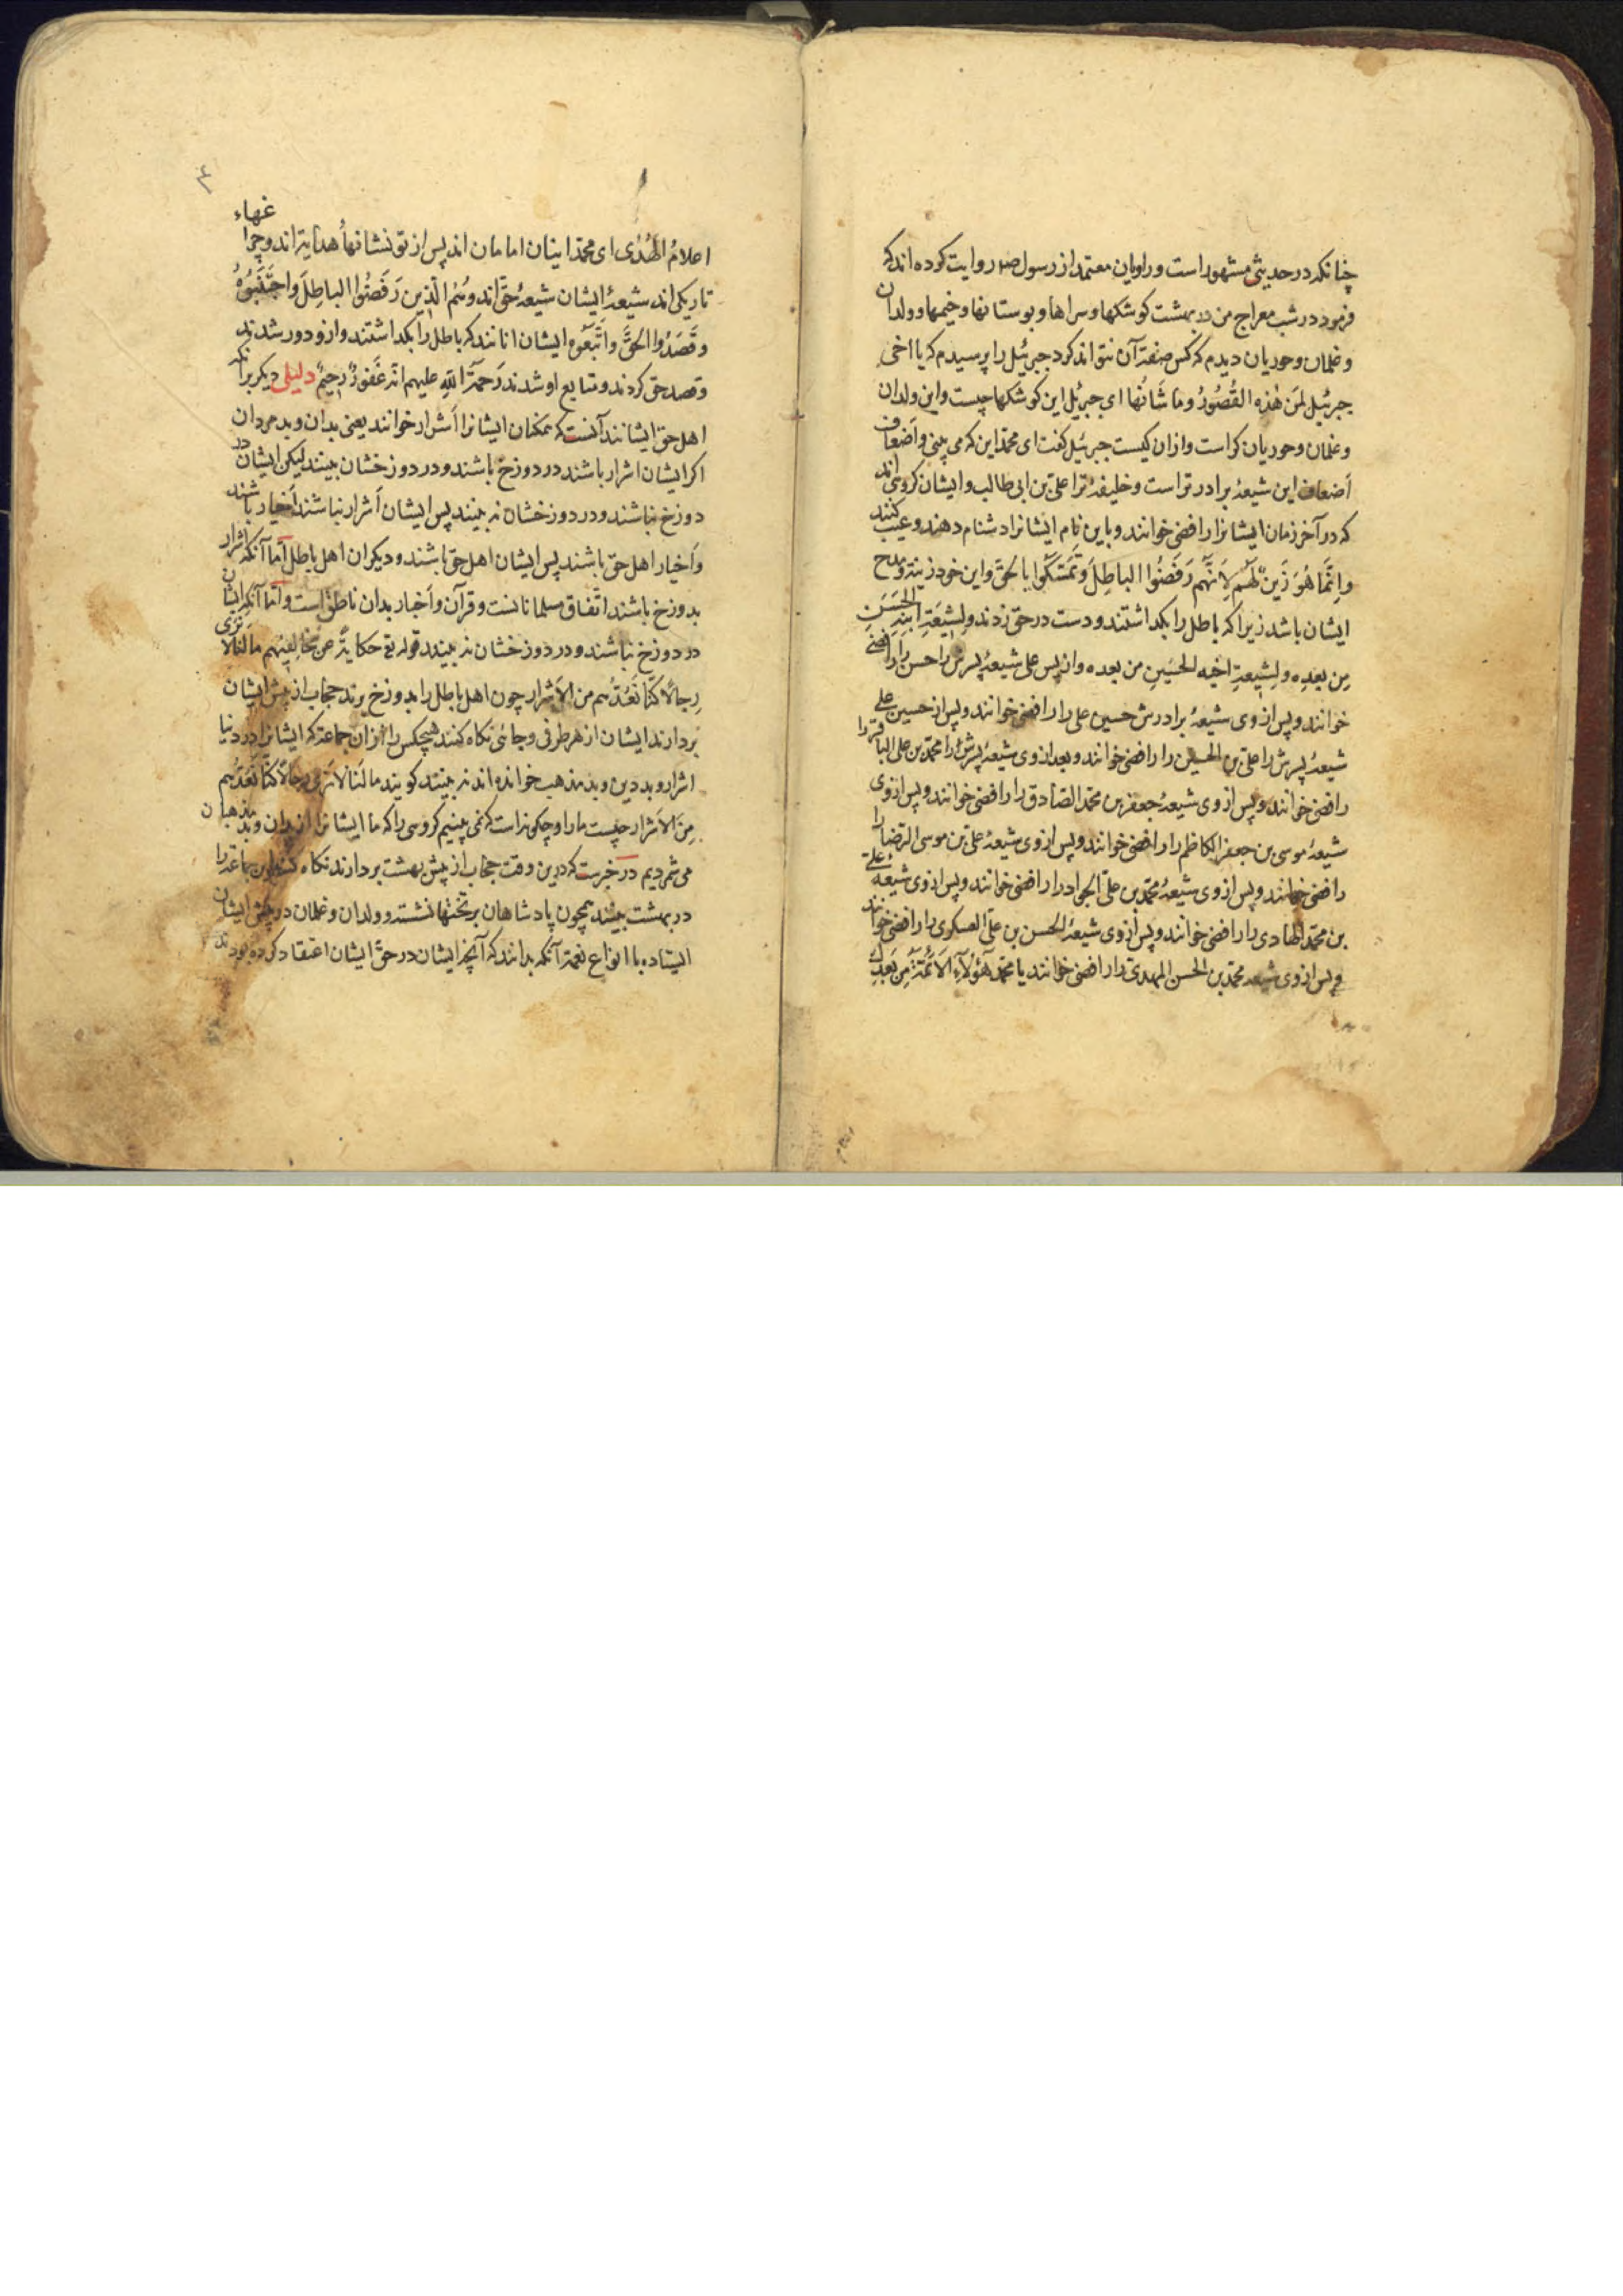 چنانکه در حدیثی مشهور است و راویان معتمد از رسول صلم روایت کرده اند که
فرمود در شب معراج من در بهشت کوشکها و سراها و بوستانها و خیمها و ولدان
و غلمان و حوریان دیدم که کس صفة آن نتواند کرد جبرئیل را پرسیدم که یا اخی
جبرئیل لمَن هٰذِه القُصُورُ وما شَانُها ای جبرئیل این کوشکها چیست و این ولدان
و غلمان و حوریان کراست و ازان کیست جبرئیل کفت ای محمّد این که می بینی و اَضعاف
اَضعاف این شیعهٔ برادر تراست و خلیفهٔ ترا علیّ بن ابی طالب و ایشان کروهی اند
که در آخر زمان ایشانرا رافضی خوانند و باین نام ایشانرا دشنام دهند و عیب کنند
واِنَّما هُوَ زَینٌ لَهُم لِاَنّهُم رَفَضُوا الباطِلَ وَتَمَسَّکُوا بالحَقّ و این خود زینة و مدح
ایشان باشد زیرا که باطل را بکداشتند و دست در حقّ زدند ولِشیعَةِ ابنِهِ الحَسَنِ
مِن بعدِه ولِشیعةِ اخیه الحسَینِ من بعده و از پس علی شیعهٔ پسرش را حسن را رافضی
خوانند و پس از وی شیعهٔ برادرش حسین علی را رافضی خوانند و پس از حسین علی
شیعهٔ پسرش را علیّ بن الحسین را رافضی خوانند و بعد از وی شیعهٔ پسرش را محمّد بن علی الباقر را
رافضی خوانند و پس از وی شیعهٔ جعفر بن محمّد الصّادق را رافضی خوانند و پس از وی
شیعهٔ موسی بن جعفر الکاظم را رافضی خوانند و پس از وی شیعهٔ علیّ بن موسی الرّضا را
رافضی خوانند و پس از وی شیعهٔ محمّد بن علیّ الجواد را رافضی خوانند و پس از وی شیعهٔ علیّ
بن محمّد الهادی را رافضی خوانند و پس از وی شیعهٔ الحسن بن علیّ العسکری را رافضی خوانند
و پس از وی شیعه محمّد بن الحسن المهدیّ را رافضی خوانند یا محمّد هٰؤُلآءِ الاَئمّةُ مِن بَعدِكَ
۴
اعلامُ الهُدٰی ای محمّد اینان امامان اند پس از تو نشانهاء هدایة اند و چراغهاء
تاریکی اند شیعهٔ ایشان شیعهٔ حقّ اند وهُمُ الّذِین رَفَضُوا الباطِلَ واجتَنَبُوهُ
وقَصَدُوا الحَقَّ واتَّبَعُوه ایشان انانند که باطل را بکداشتند و ازو دور شدند
و قصد حق کردند و متابع او شدند رَحمَةُ اللّهِ علیهم انّه غَفورٌ رَحِیمٌ دلیلی دیکر برآنکه
اهل حقّ ایشانند آنست که همکنان ایشانرا اَشرار خوانند یعنی بدان و بدمردان
اکر ایشان اشرار باشند در دوزخ باشند و در دوزخشان بینند لیکن ایشان در
دوزخ نباشند و در دوزخشان نه بینند پس ایشان اَشرار نباشند اَخیار باشند
و اَخیار اهل حقّ باشند پس ایشان اهل حقّ باشند و دیکران اهل باطل امّا آنکه اشرار
بدوزخ باشند اتّفاق مسلمانانست و قرآن و اَخبار بدان ناطق است و امّا آنکه ایشان
در دوزخ نباشند و در دوزخشان نه بینند قوله تع حکایةً عن مخالِفیهِم ما لَنا لا نَرٰی
رِجالًا کُنّا نَعُدُّهُم من الاَشرار چون اهل باطل را بدوزخ برند حجاب از پیش ایشان
بردارند ایشان از هر طرفی و جائی نکاه کنند هیچکس را ازان جماعة که ایشانرا در دنیا
اشرار و بددین و بدمذهب خوانده اند نه بینند کویند ما لَنا لا نَرٰی رِجالًا کُنّا نَعُدُّهُم
مِنَ الاَشرار چیست ما را و چکونه است که نمی بینیم کروهی را که ما ایشانرا از بدان و بدمذهبان
می شمردیم در خبرست که درین وقت حجاب از پیش بهشت بردارند نکاه کنند این جماعة را
در بهشت بینند همچون پادشاهان بر تختها نشسته و ولدان و غلمان در پیش ایشان
ایستاده با انواع نعمة آنکه بدانند که آنچه ایشان در حقّ ایشان اعتقاد کرده بودند